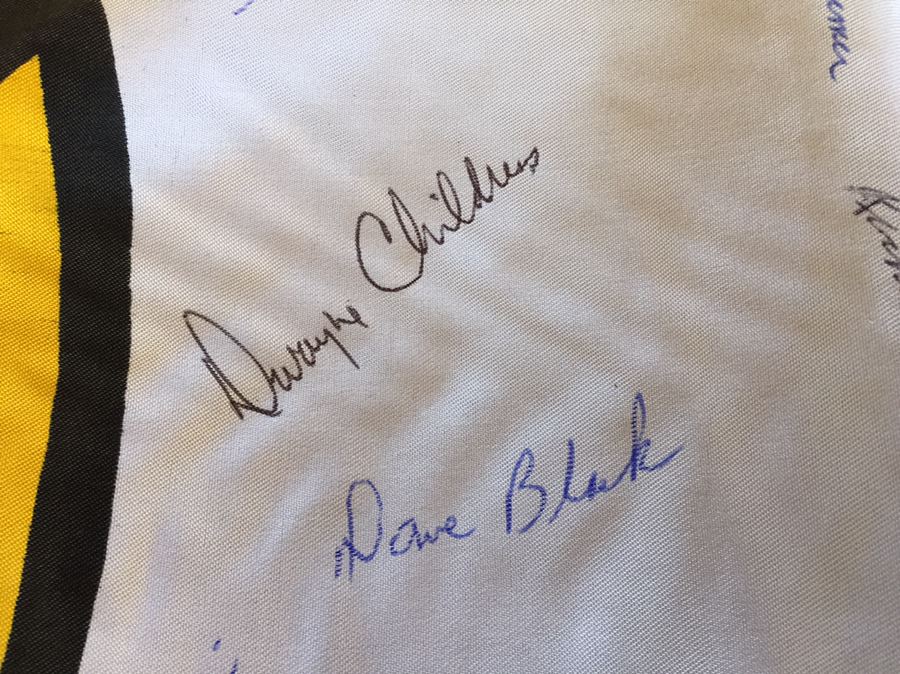 Dwayne Childress
Dave Black